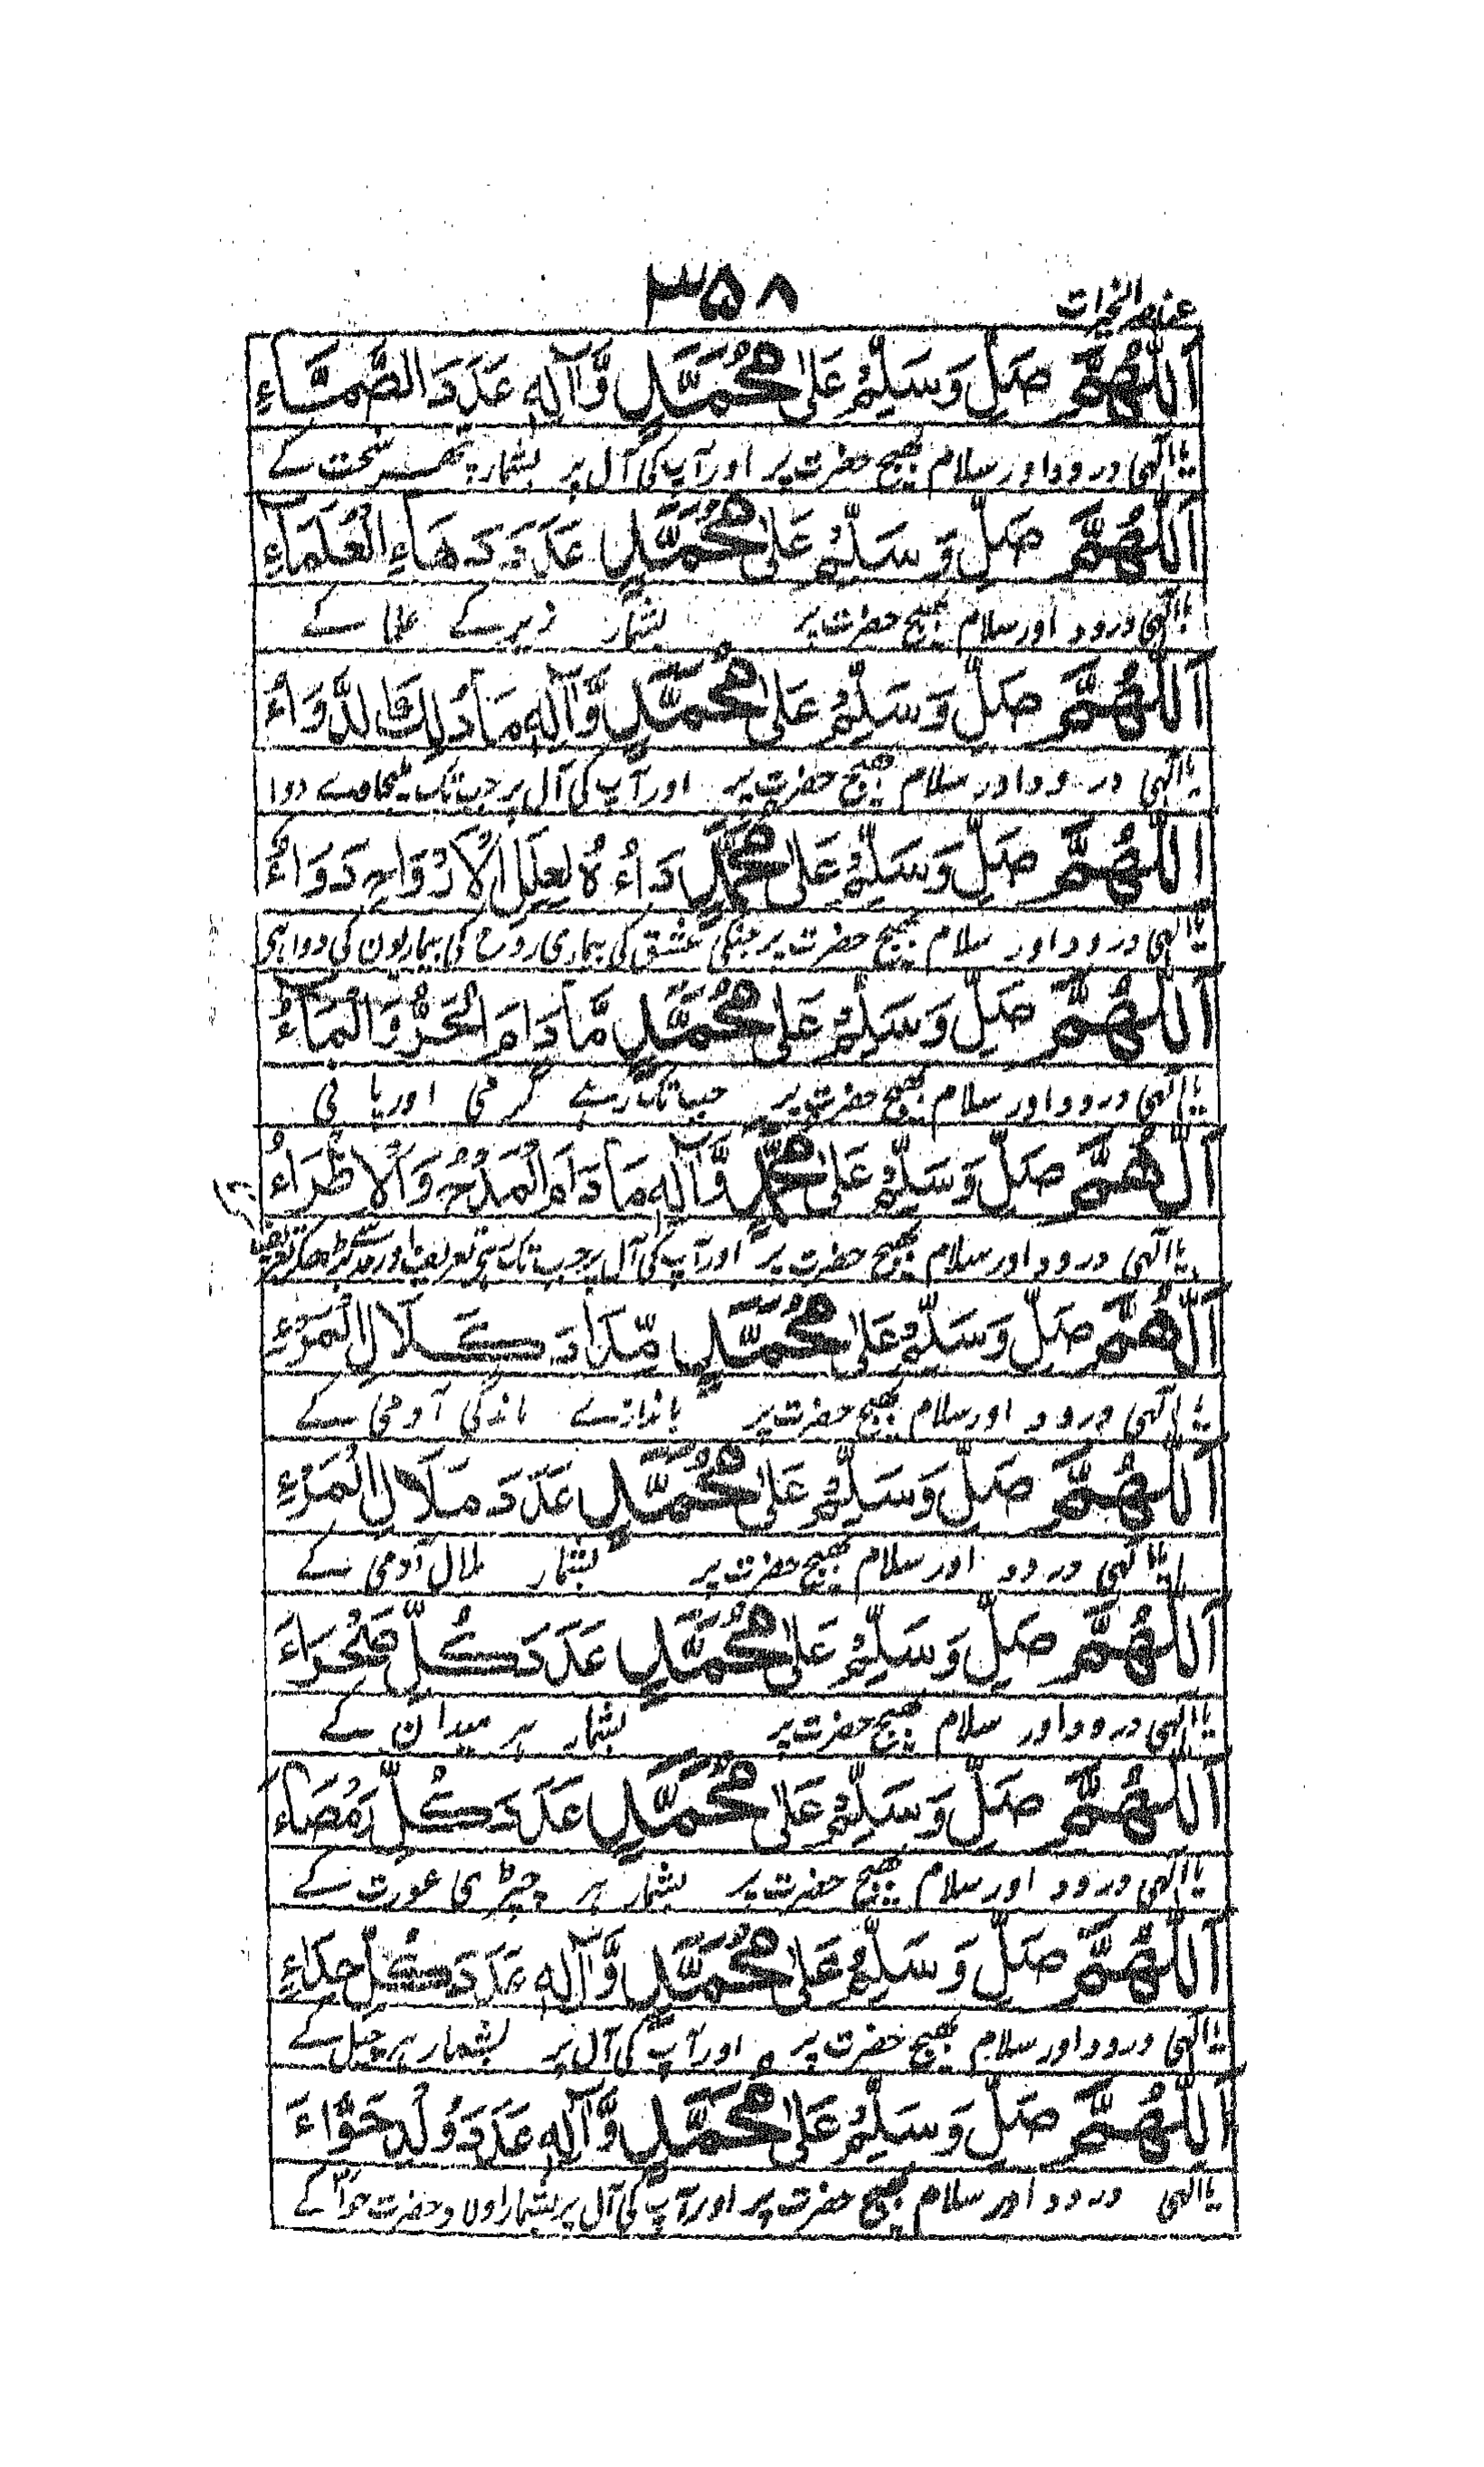 عناصر الخیرات
۳۵۸
اَللّٰهُمَّ صَلِّ وَسَلِّمْ عَلٰی مُحَمَّدٍ وَّاٰلِهٖ عَدَدَ الصَّمَّاءِ
یا الٰہی درود اور سلام بھیج حضرت پر اور آپ کی آل پر بشمار پتھر سخت کے
اَللّٰهُمَّ صَلِّ وَسَلِّمْ عَلٰی مُحَمَّدٍ عَدَدَ دَهَاءِ الْعُلَمَاءِ
یا الٰہی درود اور سلام بھیج حضرت پر بشمار زیرکے علما کے
اَللّٰهُمَّ صَلِّ وَسَلِّمْ عَلٰی مُحَمَّدٍ وَّاٰلِهٖ مَا دُلِكَ الدَّوَاءُ
یا الٰہی درود اور سلام بھیج حضرت پر اور آپ کی آل پر جب تک دوا
اَللّٰهُمَّ صَلِّ وَسَلِّمْ عَلٰی مُحَمَّدٍ دَاءُهٗ لِعِلَلِ الْاَرْوَاحِ دَوَاءٌ
یا الٰہی درود اور سلام بھیج حضرت پر جنکی عشق کی بیماری روح کی بیماریون کی دوا ہی
اَللّٰهُمَّ صَلِّ وَسَلِّمْ عَلٰی مُحَمَّدٍ مَّا دَامَ الْحَرُّ وَالْمَاءُ
یا الٰہی درود اور سلام بھیج حضرت پر جب تک رہے گرمی اور پانی
اَللّٰهُمَّ صَلِّ وَسَلِّمْ عَلٰی مُحَمَّدٍ وَّاٰلِهٖ مَا دَامَ الْمَدْحُ وَالْاِطْرَاءُ
یا الٰہی درود اور سلام بھیج حضرت پر اور آپ کی آل پر جب تک سچی تعریف اور حد سے بڑھکر تعریف
اَللّٰهُمَّ صَلِّ وَسَلِّمْ عَلٰی مُحَمَّدٍ مِّدَادَ كَلَالِ الْمَرْءِ
یا الٰہی درود اور سلام بھیج حضرت پر باندازے ماندگی آدمی کے
اَللّٰهُمَّ صَلِّ وَسَلِّمْ عَلٰی مُحَمَّدٍ عَدَدَ مَلَالِ الْمَرْءِ
یا الٰہی درود اور سلام بھیج حضرت پر بشمار ملال آدمی کے
اَللّٰهُمَّ صَلِّ وَسَلِّمْ عَلٰی مُحَمَّدٍ عَدَدَ كُلِّ صَحْرَاءَ
یا الٰہی درود اور سلام بھیج حضرت پر بشمار ہر میدان کے
اَللّٰهُمَّ صَلِّ وَسَلِّمْ عَلٰی مُحَمَّدٍ عَدَدَ كُلِّ رَمْصَاءَ
یا الٰہی درود اور سلام بھیج حضرت پر بشمار ہر چپڑی عورت کے
اَللّٰهُمَّ صَلِّ وَسَلِّمْ عَلٰی مُحَمَّدٍ وَّاٰلِهٖ عَدَدَ كُلِّ حِدَاءٍ
یا الٰہی درود اور سلام بھیج حضرت پر اور آپ کی آل پر بشمار ہر چیل کے
اَللّٰهُمَّ صَلِّ وَسَلِّمْ عَلٰی مُحَمَّدٍ وَّاٰلِهٖ عَدَدَ وُلْدِ حَوَّاءَ
یا الٰہی درود اور سلام بھیج حضرت پر اور آپ کی آل پر بشمار اولاد حضرت حوا کے